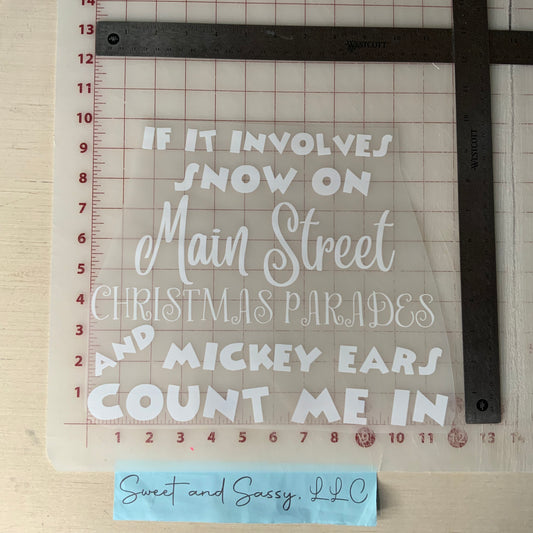 14
13
12
11
10
9
8
7
6
5
4
3
2
1
WESTCOTT
14
IF IT INVOLVES
SNOW ON
Main Street
CHRISTMAS PARADES
AND MICKEY EARS
COUNT ME IN
WESTCOTT
1 2 3 4 5 6 7 8 9 10 11 12 13 14
Sweet and Sassy, LLC